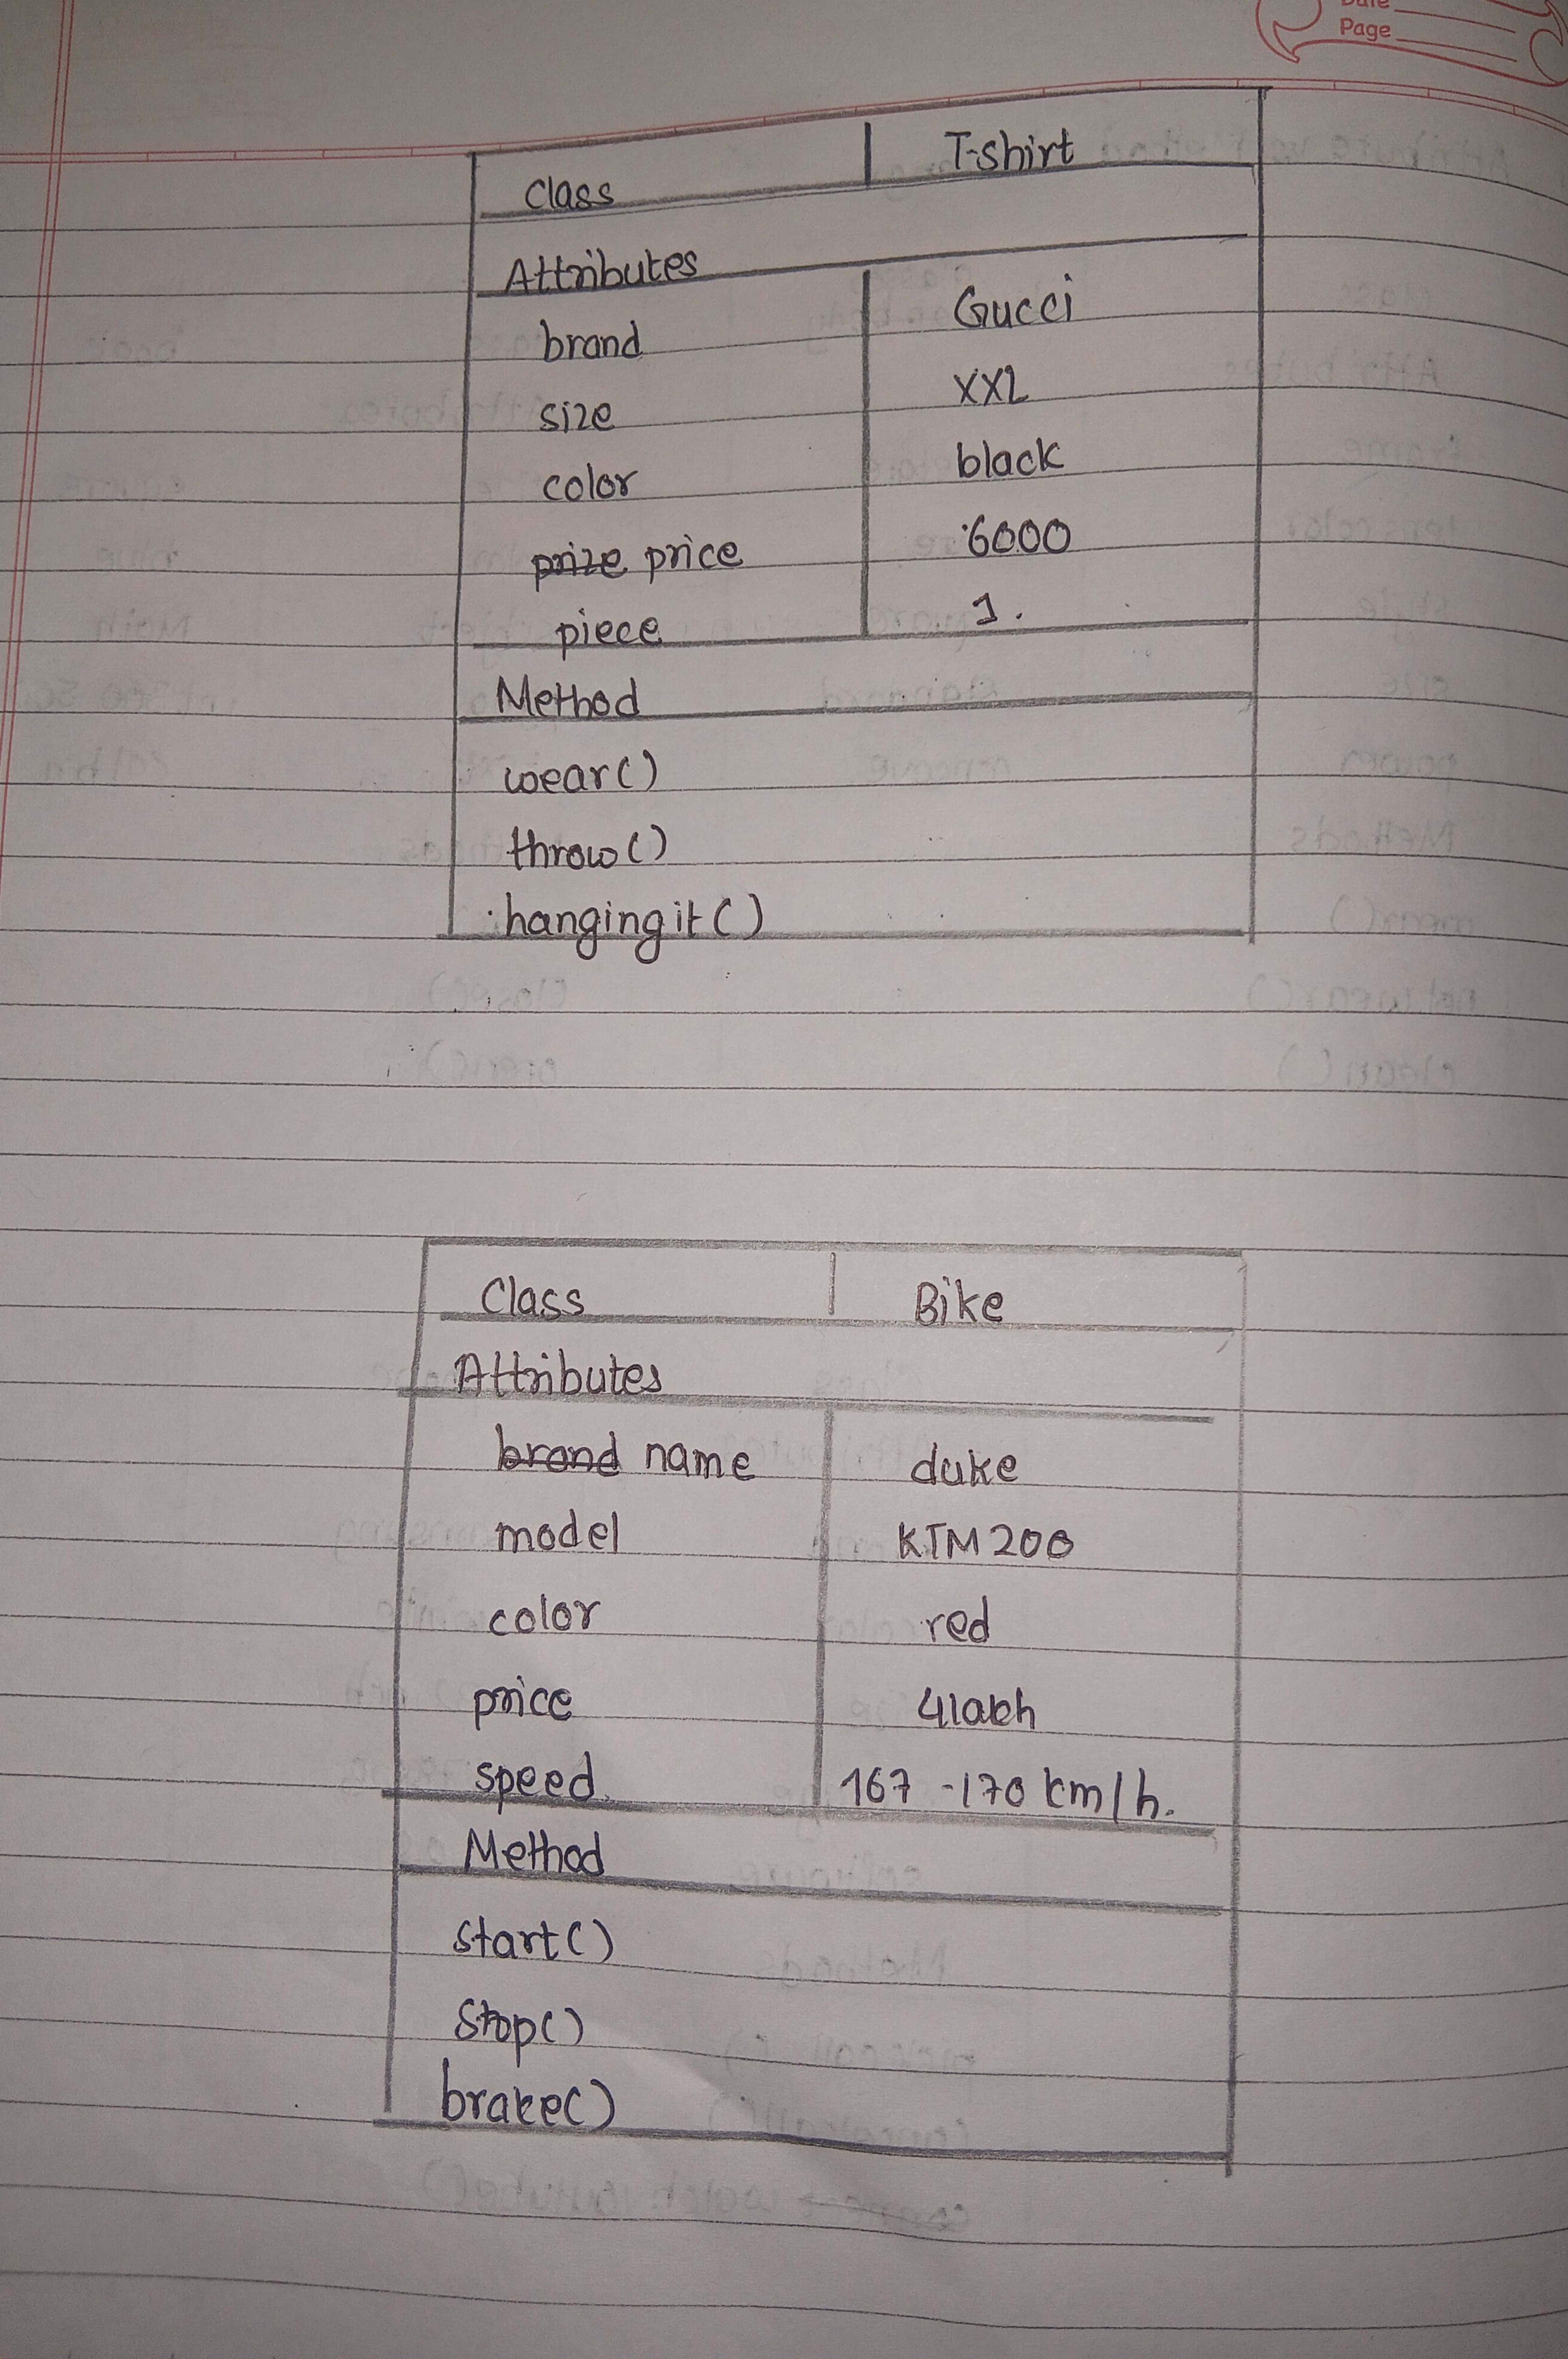 Date
Page
Class T-shirt
Attributes
brand Gucci
size XXL
color black
prize price 6000
piece 1.
Method
wear()
throw()
hanging it()
Class Bike
Attributes
brand name duke
model KTM 200
color red
price 4 lakh
speed 167 - 170 km/h.
Method
start()
Stop()
brake()